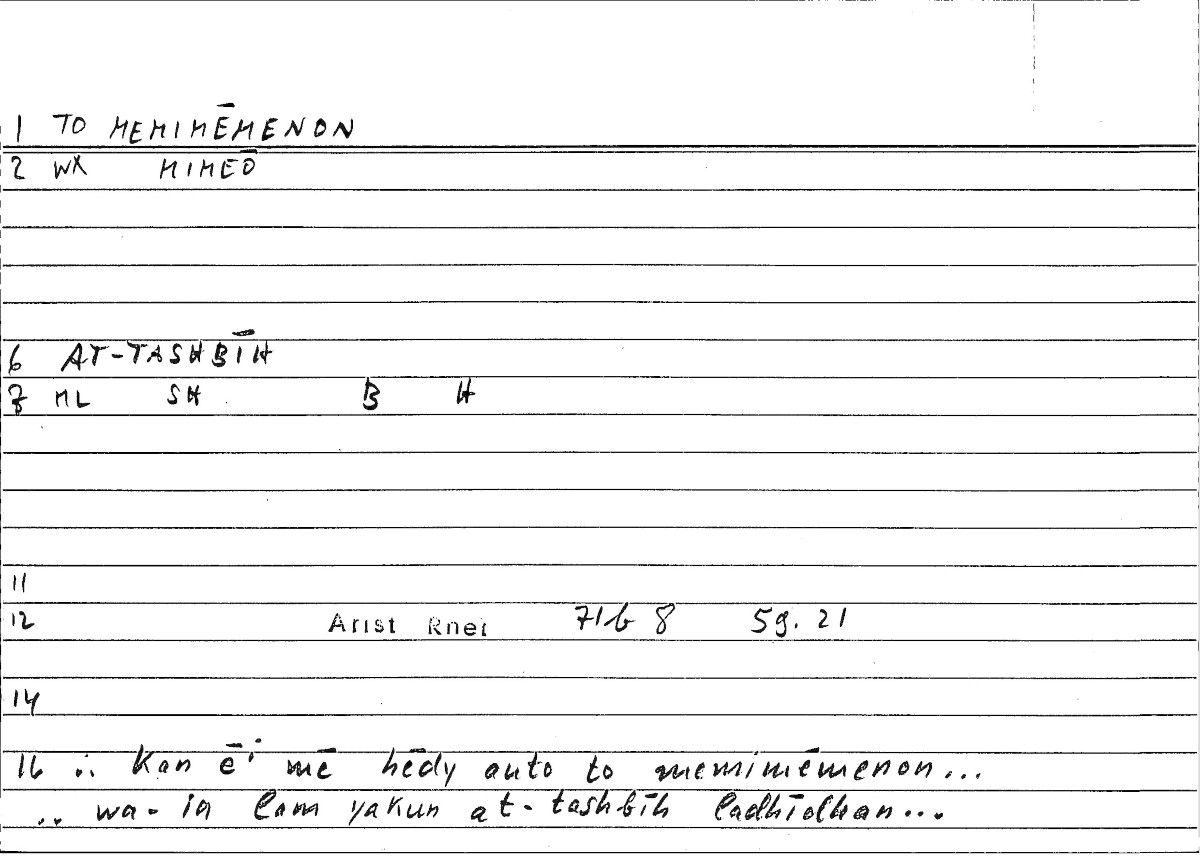 1 TO MEMIMĒMENON
2 WK MIMEŌ
6 AT-TASHBĪH
7 ML SH B H
11
12 Arist Rhet 71b 8 59. 21
14
16 .. Kan ē' mē hēdy auto to memimēmenon...
.. wa-in lam yakun at-tashbīh ladhīdhan...